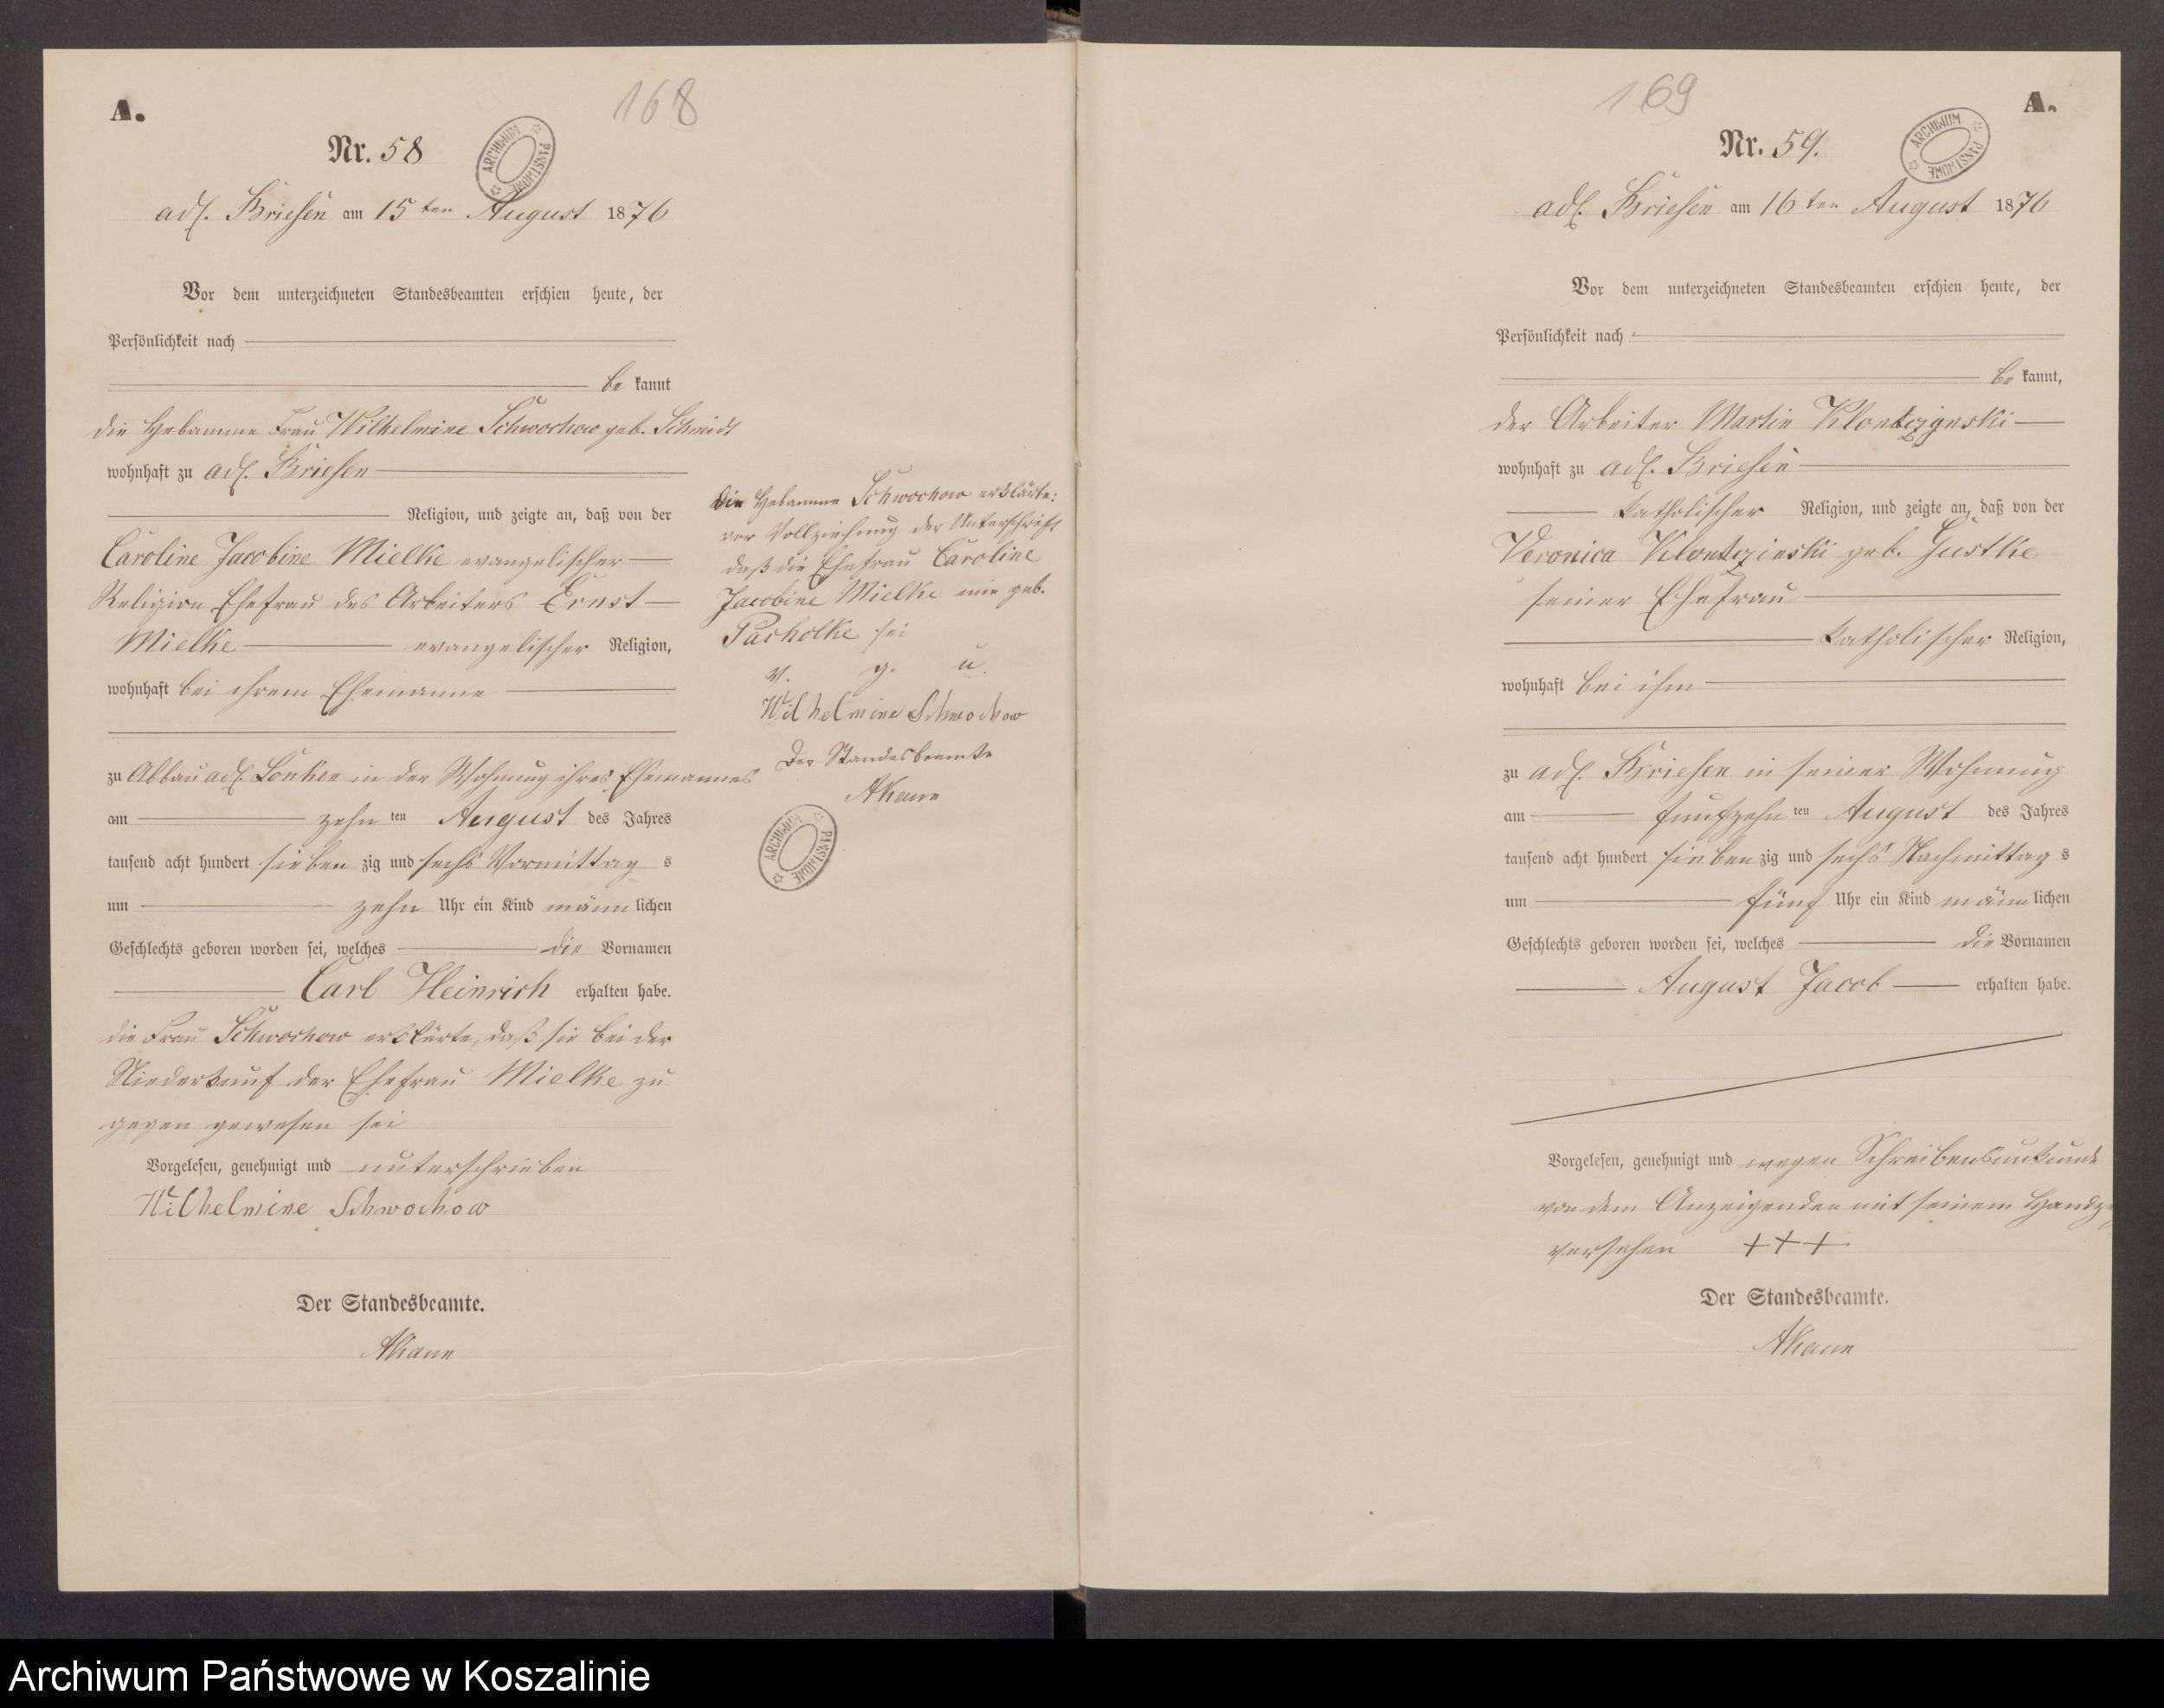 A.
168
Nr. 58
ARCHIWUM PAŃSTWOWE
adl. Briesen am 15ten August 1876
Vor dem unterzeichneten Standesbeamten erschien heute, der
Persönlichkeit nach
be kannt
die Hebamme Frau Wilhelmine Schwochow geb. Schmidt
wohnhaft zu adl. Briesen
Religion, und zeigte an, daß von der
Caroline Jacobine Mielke evangelischer
Religion Ehefrau des Arbeiters Ernst
Mielke evangelischer Religion,
wohnhaft bei ihrem Ehemanne
zu Abbau adl. Lonken in der Wohnung ihres Ehemannes
am zehn ten August des Jahres
tausend acht hundert sieben zig und sechs Vormittag s
um zehn Uhr ein Kind männ lichen
Geschlechts geboren worden sei, welches die Vornamen
Carl Heinrich erhalten habe.
die Frau Schwochow erklärte, daß sie bei der
Niederkunf der Ehefrau Mielke zu
gegen gewesen sei
Vorgelesen, genehmigt und unterschrieben
Wilhelmine Schwochow
Der Standesbeamte.
die Hebamme Schwochow erklärte:
vor Vollziehung der Unterschrift
daß die Ehefrau Caroline
Jacobine Mielke eine geb.
Pacholke sei
v. g. u.
Wilhelmine Schwochow
Der Standesbeamte
ARCHIWUM PAŃSTWOWE
169
A.
Nr. 59.
ARCHIWUM PAŃSTWOWE
adl. Briesen am 16ten August 1876
Vor dem unterzeichneten Standesbeamten erschien heute, der
Persönlichkeit nach
be kannt,
der Arbeiter Martin
wohnhaft zu adl. Briesen
katholischer Religion, und zeigte an, daß von der
Veronica geb. Gustke
seiner Ehefrau
katholischer Religion,
wohnhaft bei ihm
zu adl. Briesen in seiner Wohnung
am funfzehn ten August des Jahres
tausend acht hundert sieben zig und sechs Nachmittag s
um fünf Uhr ein Kind männ lichen
Geschlechts geboren worden sei, welches die Vornamen
August Jacob erhalten habe.
Vorgelesen, genehmigt und wegen Schreibensunkunde
von dem Anzeigenden mit seinem Handz
versehen +++
Der Standesbeamte.
Archiwum Państwowe w Koszalinie